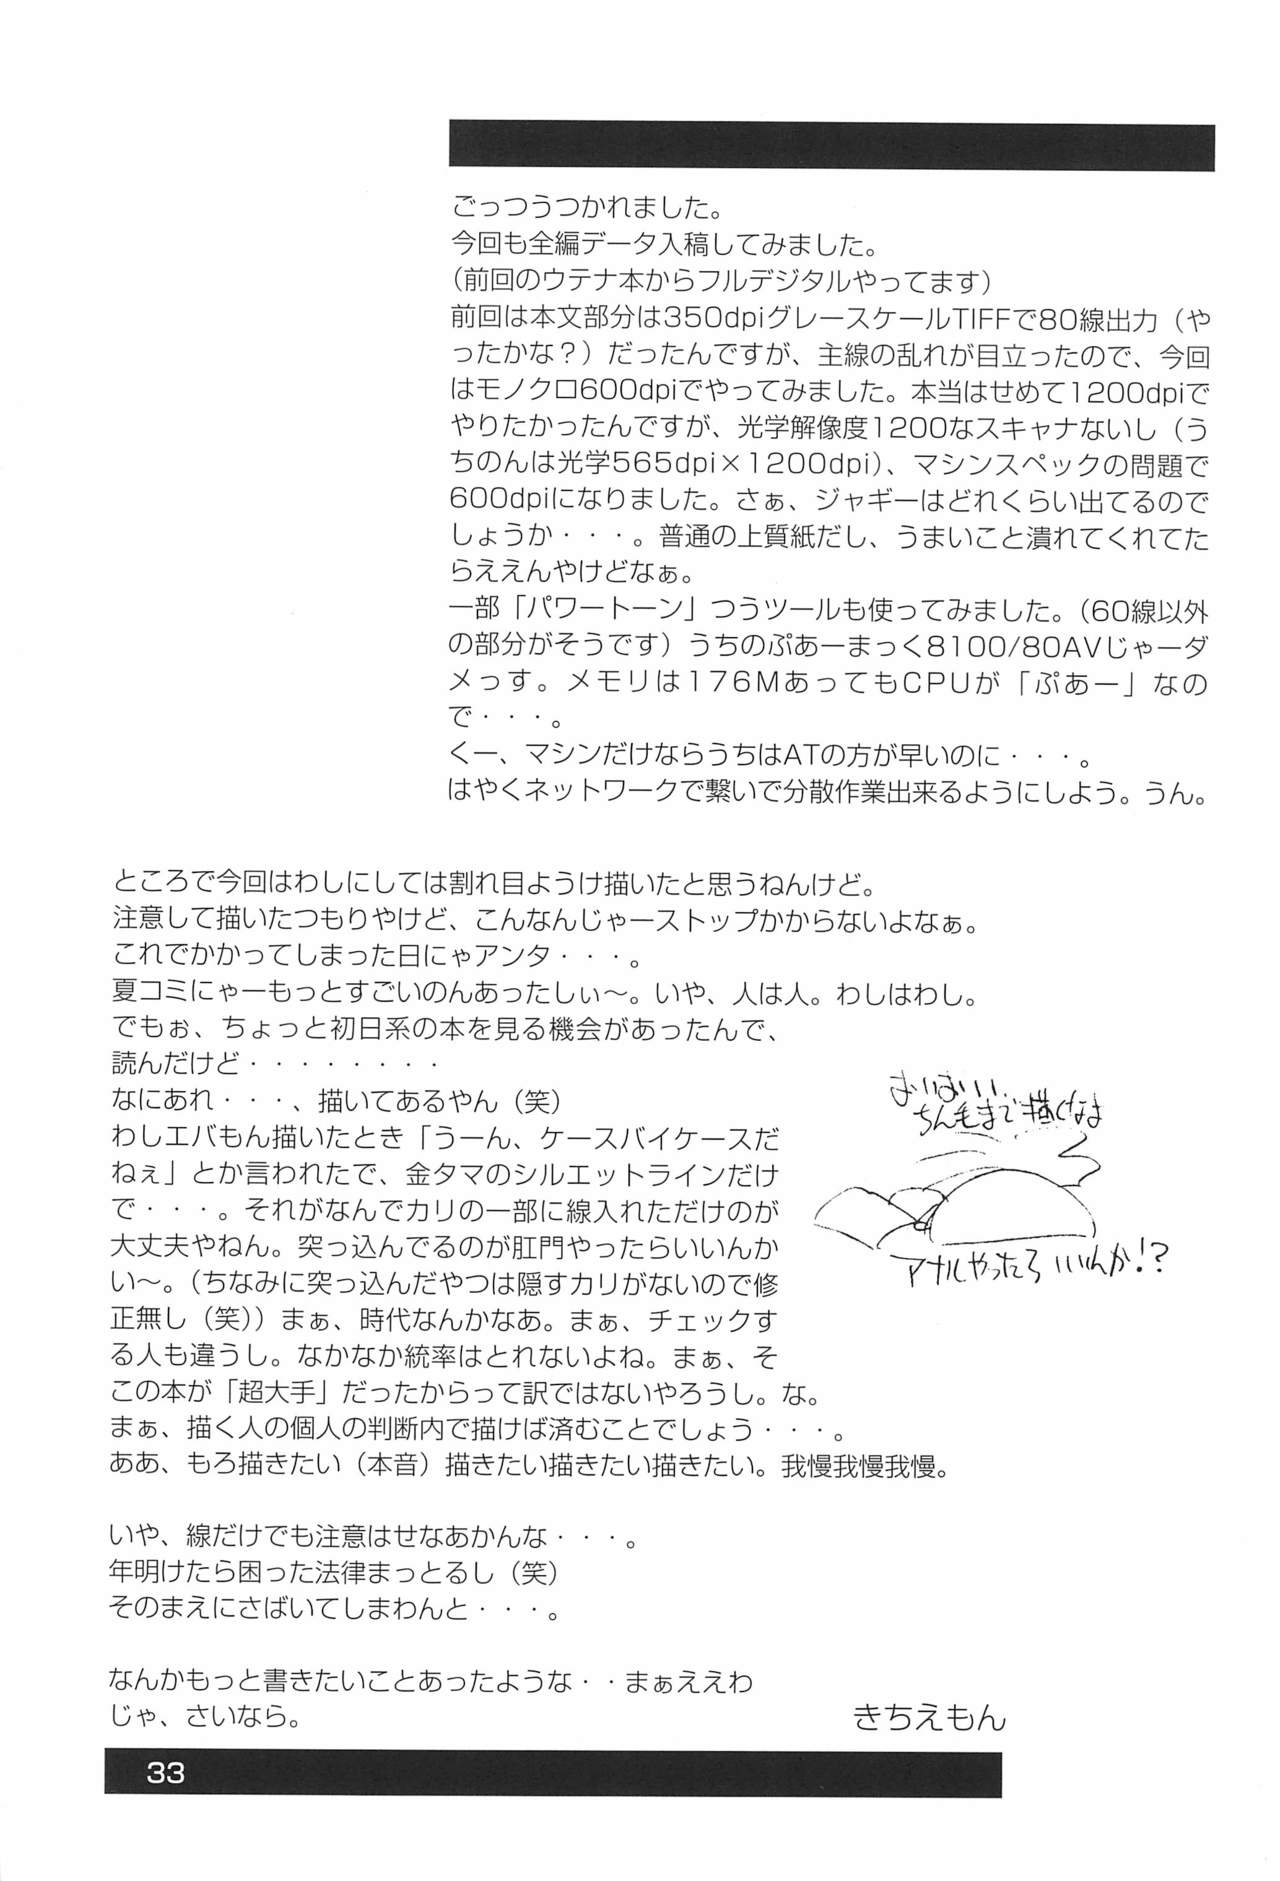 ごっつうつかれました。
今回も全編データ入稿してみました。
（前回のウテナ本からフルデジタルやってます）
前回は本文部分は350dpiグレースケールTIFFで80線出力（や
ったかな？）だったんですが、主線の乱れが目立ったので、今回
はモノクロ600dpiでやってみました。本当はせめて1200dpiで
やりたかったんですが、光学解像度1200なスキャナないし（う
ちのんは光学565dpi×1200dpi）、マシンスペックの問題で
600dpiになりました。さぁ、ジャギーはどれくらい出てるので
しょうか・・・。普通の上質紙だし、うまいこと潰れてくれてた
らええんやけどなぁ。
一部「パワートーン」つうツールも使ってみました。（60線以外
の部分がそうです）うちのぷあーまっく8100/80AVじゃーダ
メっす。メモリは176MあってもCPUが「ぷあー」なの
で・・・。
くー、マシンだけならうちはATの方が早いのに・・・。
はやくネットワークで繋いで分散作業出来るようにしよう。うん。
ところで今回はわしにしては割れ目ようけ描いたと思うねんけど。
注意して描いたつもりやけど、こんなんじゃーストップかからないよなぁ。
これでかかってしまった日にゃアンタ・・・。
夏コミにゃーもっとすごいのんあったしぃ〜。いや、人は人。わしはわし。
でもぉ、ちょっと初日系の本を見る機会があったんで、
読んだけど・・・・・・・・
なにあれ・・・、描いてあるやん（笑）
わしエバもん描いたとき「うーん、ケースバイケースだ
ねぇ」とか言われたで、金タマのシルエットラインだけ
で・・・。それがなんでカリの一部に線入れただけのが
大丈夫やねん。突っ込んでるのが肛門やったらいいんか
い〜。（ちなみに突っ込んだやつは隠すカリがないので修
正無し（笑））まぁ、時代なんかなあ。まぁ、チェックす
る人も違うし。なかなか統率はとれないよね。まぁ、そ
この本が「超大手」だったからって訳ではないやろうし。な。
まぁ、描く人の個人の判断内で描けば済むことでしょう・・・。
ああ、もろ描きたい（本音）描きたい描きたい描きたい。我慢我慢我慢。
おいおい、
ちん毛まで描くなよ
アナルやったら いいんか!?
いや、線だけでも注意はせなあかんな・・・。
年明けたら困った法律まっとるし（笑）
そのまえにさばいてしまわんと・・・。
なんかもっと書きたいことあったような・・まぁええわ
じゃ、さいなら。
きちえもん
33